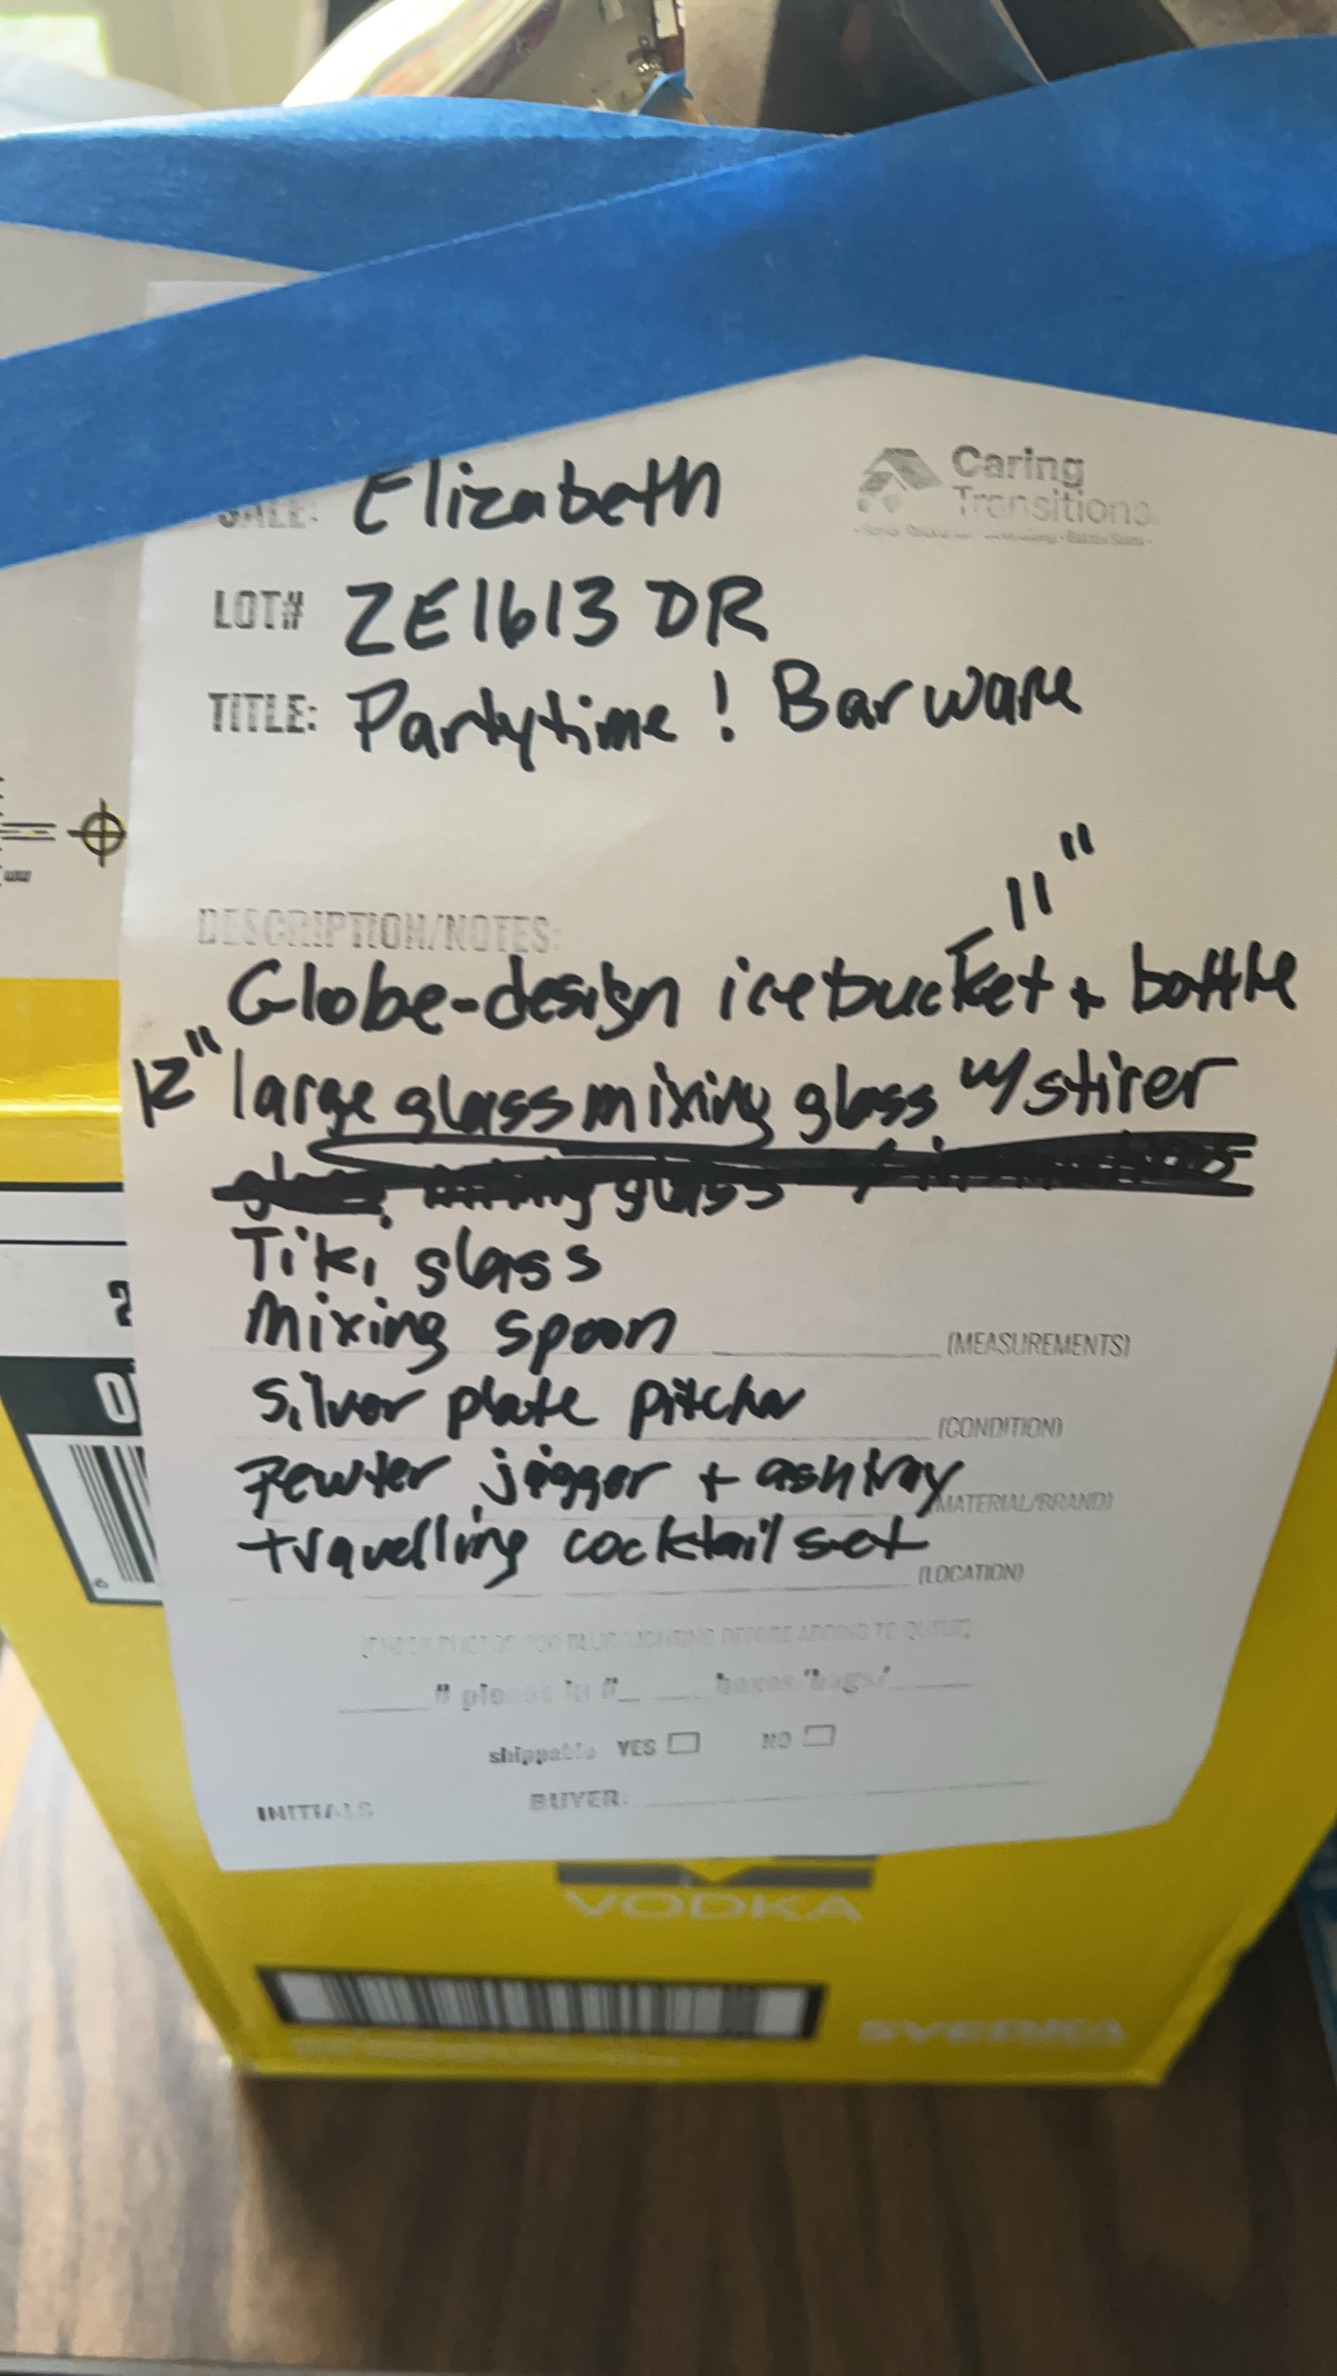 SALE: Elizabeth
Caring
Transitions
LOT# ZE1613 DR
TITLE: Partytime! Barware
DESCRIPTION/NOTES:
11"
Globe-design icebucket + bottle
12" large glass mixing glass w/ stirer
mixing glass
Tiki glass
Mixing spoon
(MEASUREMENTS)
Silver plate pitcher
(CONDITION)
Pewter jigger + ashtray
(MATERIAL/BRAND)
travelling cocktail set
(LOCATION)
BEFORE ADDING TO QUEUE
# pieces in # boxes/bags/
shippable YES NO
INITIALS BUYER:
VODKA
SVEDKA